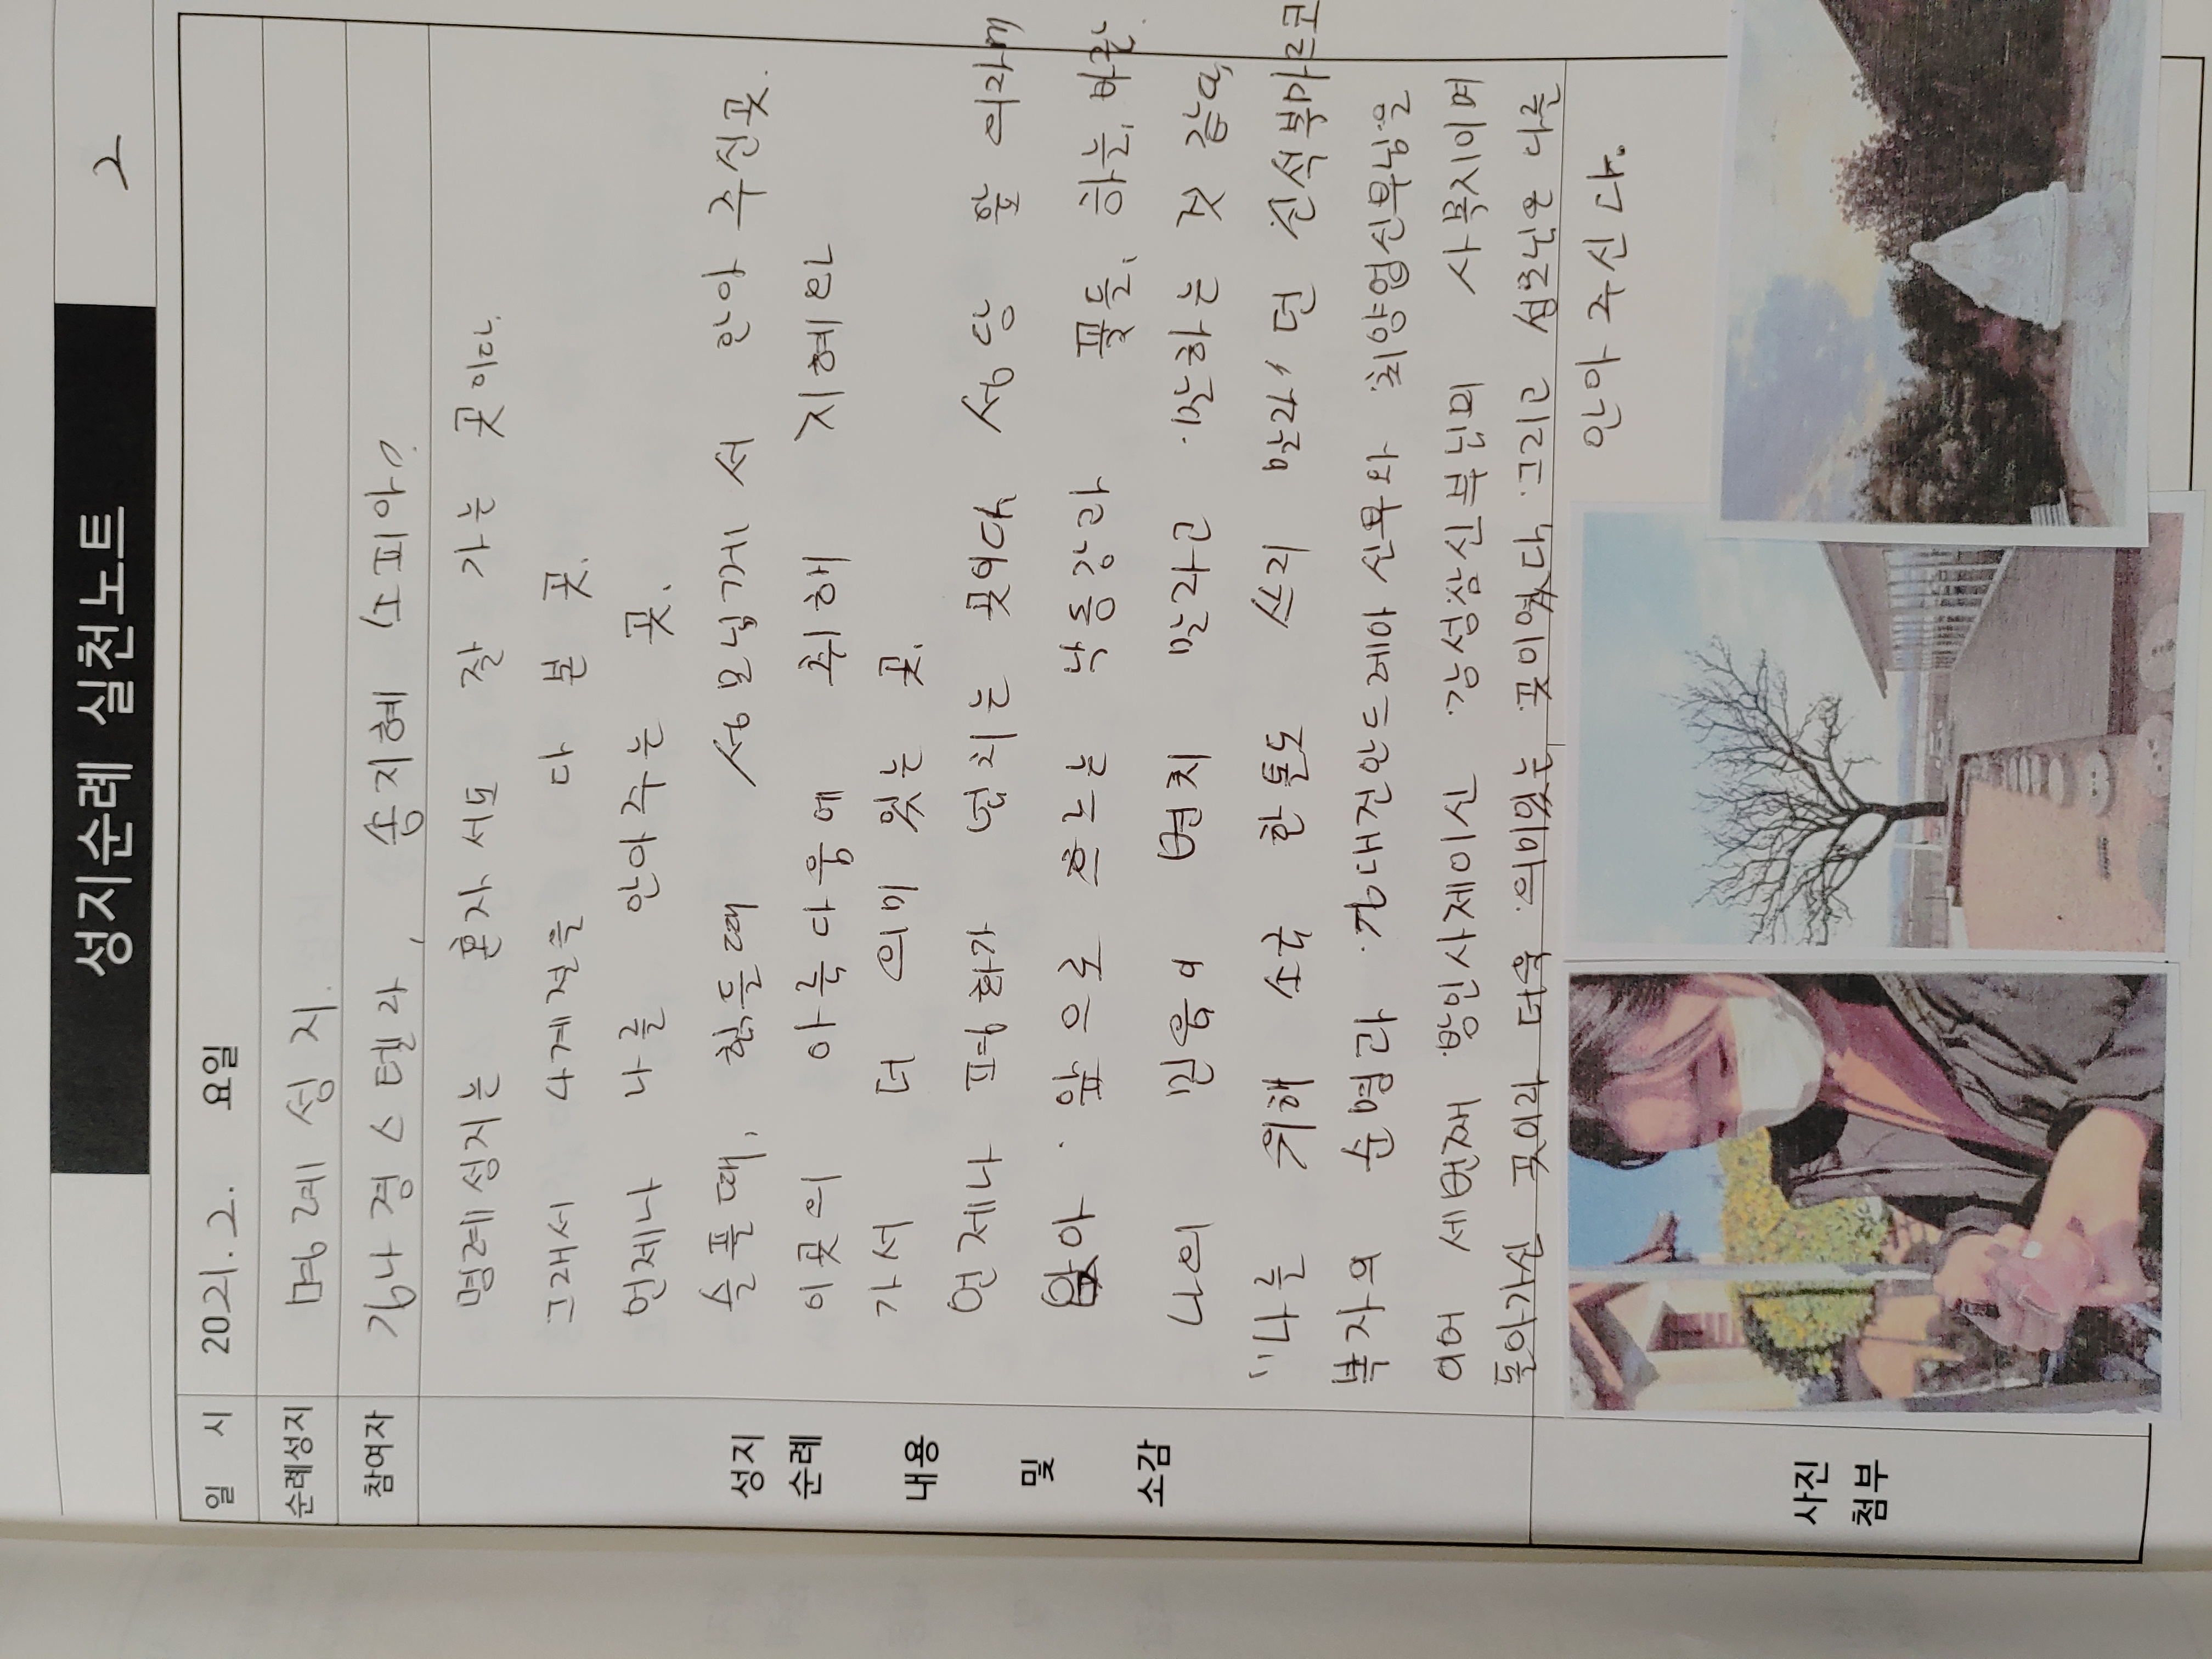 성지순례 실천노트 2
일 시 2021. 2. 요일
순례성지 명례성지.
참여자 강나경스텔라, 송지혜(소피아)
명례성지는 혼자서도 잘 가는 곳이다.
그래서 사계절을 다 본 곳.
언제나 나를 안아주는 곳.
슬플때, 힘들때 성모님께서 안아 주신곳.
이곳의 아름다움에 취해 지혜인
가서 더 의미 있는 곳.
언제나 평화가 넘치는 곳이다. 성당 앞 의자에
앉아 앞으로 흐르는 낙동강과 풀들, 하늘, 바람.
나의 믿음이 변치 말라고 말하는 것 같다,
"나를 위해 소금 한톨도 쓰지 말라, 던 신석복마르코
복자의 순명과 김대건안드레아 신부와 최양업신부님을
이어 세번째 방인사제이신 강성삼신부님의 사목지이며
돌아가신 곳이라 더욱 의미있는 곳이였다. 그리고 성모님은 나를
안아 주신다.
성지
순례
내용
및
소감
사진
첨부